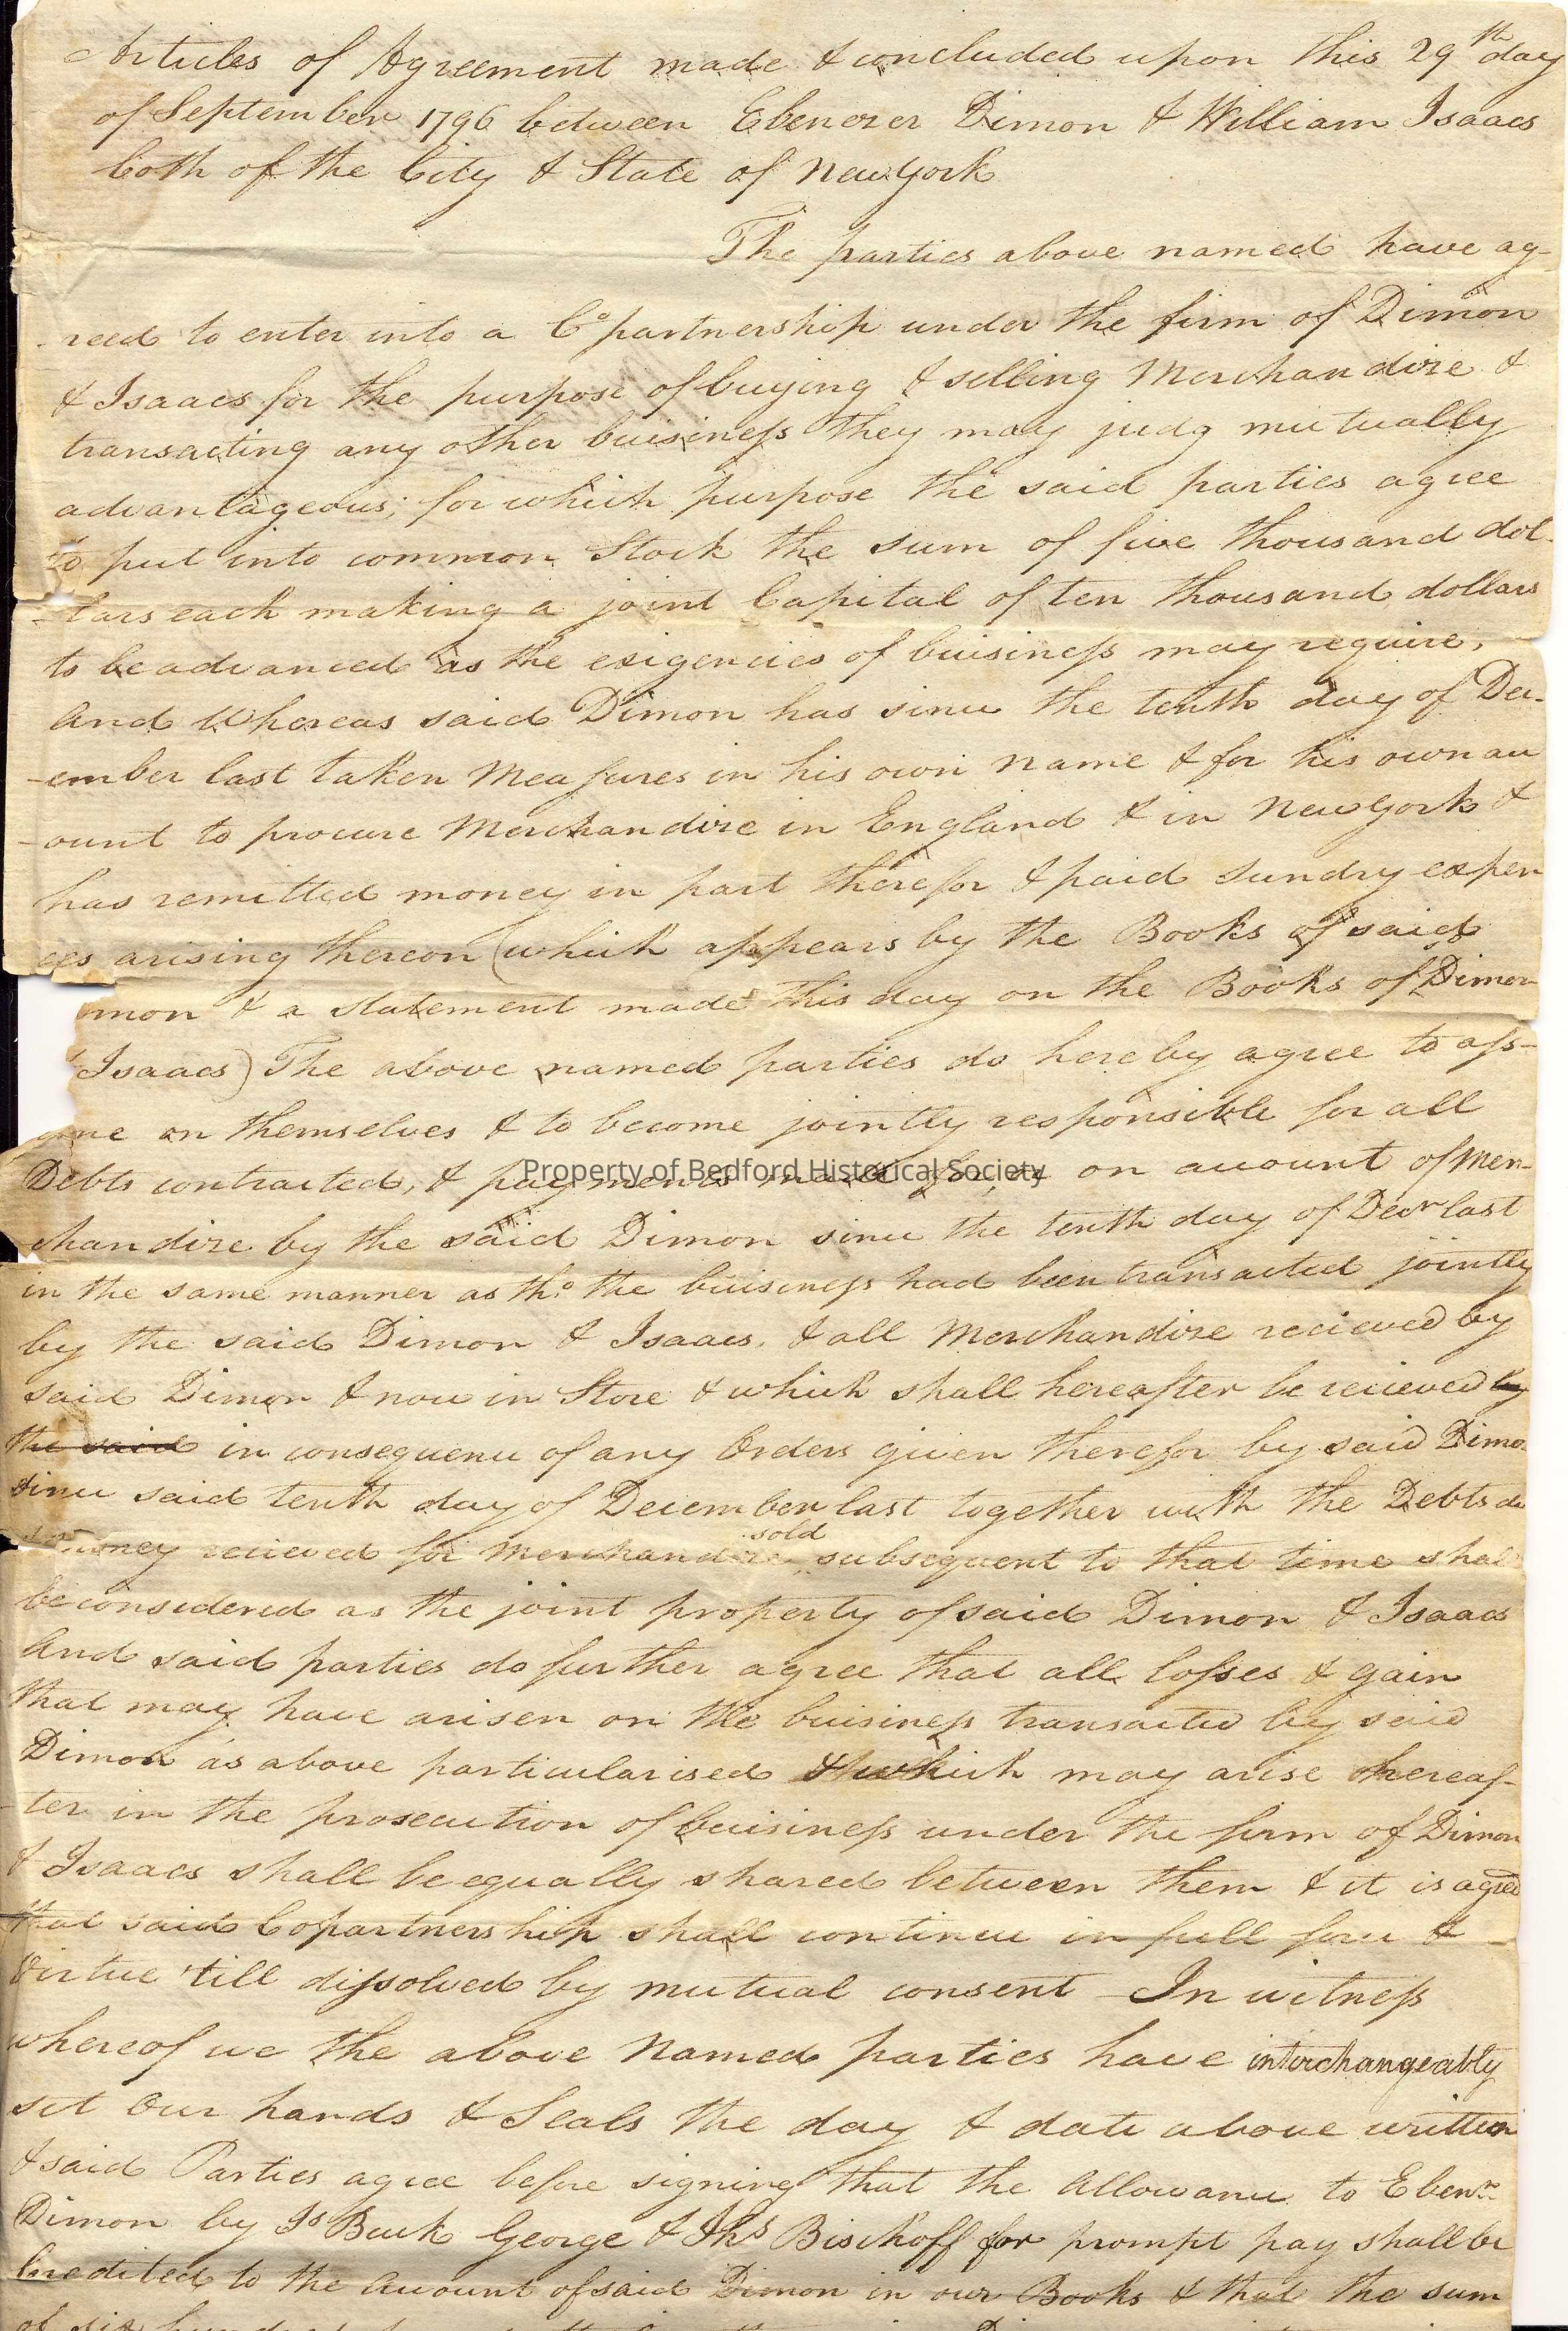 Articles of Agreement made & concluded upon this 29th day
of September 1796 between Ebenezer Dimon & William Isaacs
both of the City & State of New York
The parties above named have ag-
-reed to enter into a Copartnership under the firm of Dimon
& Isaacs for the purpose of buying & selling Merchandize &
transacting any other buisiness they may judg mutually
advantageous; for which purpose the said parties agree
to put into common Stock the sum of five thousand dol-
-lars each making a joint Capital of ten thousand dollars
to be advanced as the exigencies of buisiness may require,
And Whereas said Dimon has since the tenth day of Dec-
-ember last taken Measures in his own name & for his own acc
-ount to procure Merchandize in England & in New York &
has remitted money in part therefor & paid Sundry expen
ces arising thereon (which appears by the Books of said
imon & a statement made this day on the Books of Dimon
Isaacs) The above named parties do hereby agree to ass-
ume on themselves & to become jointly responsible for all
Debts contracted, & payments made for, or on account of Mer-
chandize by the said Dimon since the tenth day of Decr last
in the same manner as tho the buisiness had been transacted jointly
by the said Dimon & Isaacs, & all Merchandize recieved by
said Dimon & now in Store & which shall hereafter be recieved by
the said in consequence of any Orders given therefor by said Dimo
since said tenth day of December last together with the Debts du
money recieved for Merchandize sold subsequent to that time shal
be considered as the joint property of said Dimon & Isaacs
And said parties do further agree that all losses & gain
that may have arisen on the buisiness transacted by said
Dimon as above particularised & which may arise hereaf-
-ter in the prosecution of buisiness under the firm of Dimon
& Isaacs shall be equally shared between them & it is agreed
that said Copartnership shall continue in full force &
Virtue 'till dissolved by mutual consent – In witness
whereof we the above Named parties have interchangeably
set Our hands & Seals the day & date above written
& said Parties agree before signing that the Allowance to Ebenr
Dimon by Js Buck George & Ths Bischoff for prompt pay shall be
Credited to the Account of said Dimon in our Books & that the sum
of six hundred
Property of Bedford Historical Society